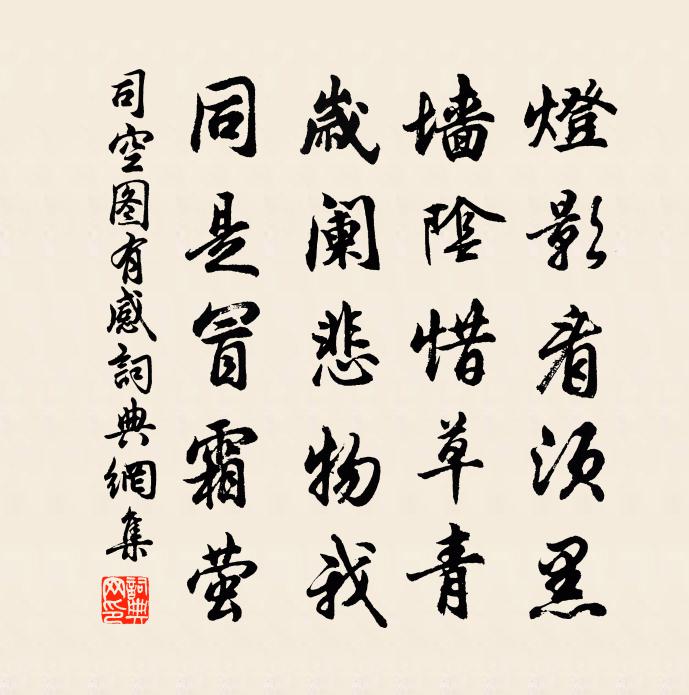 燈影看須黑
墻陰惜草青
歲闌悲物我
同是冒霜螢
司空图有感詞典網集
詞典网印